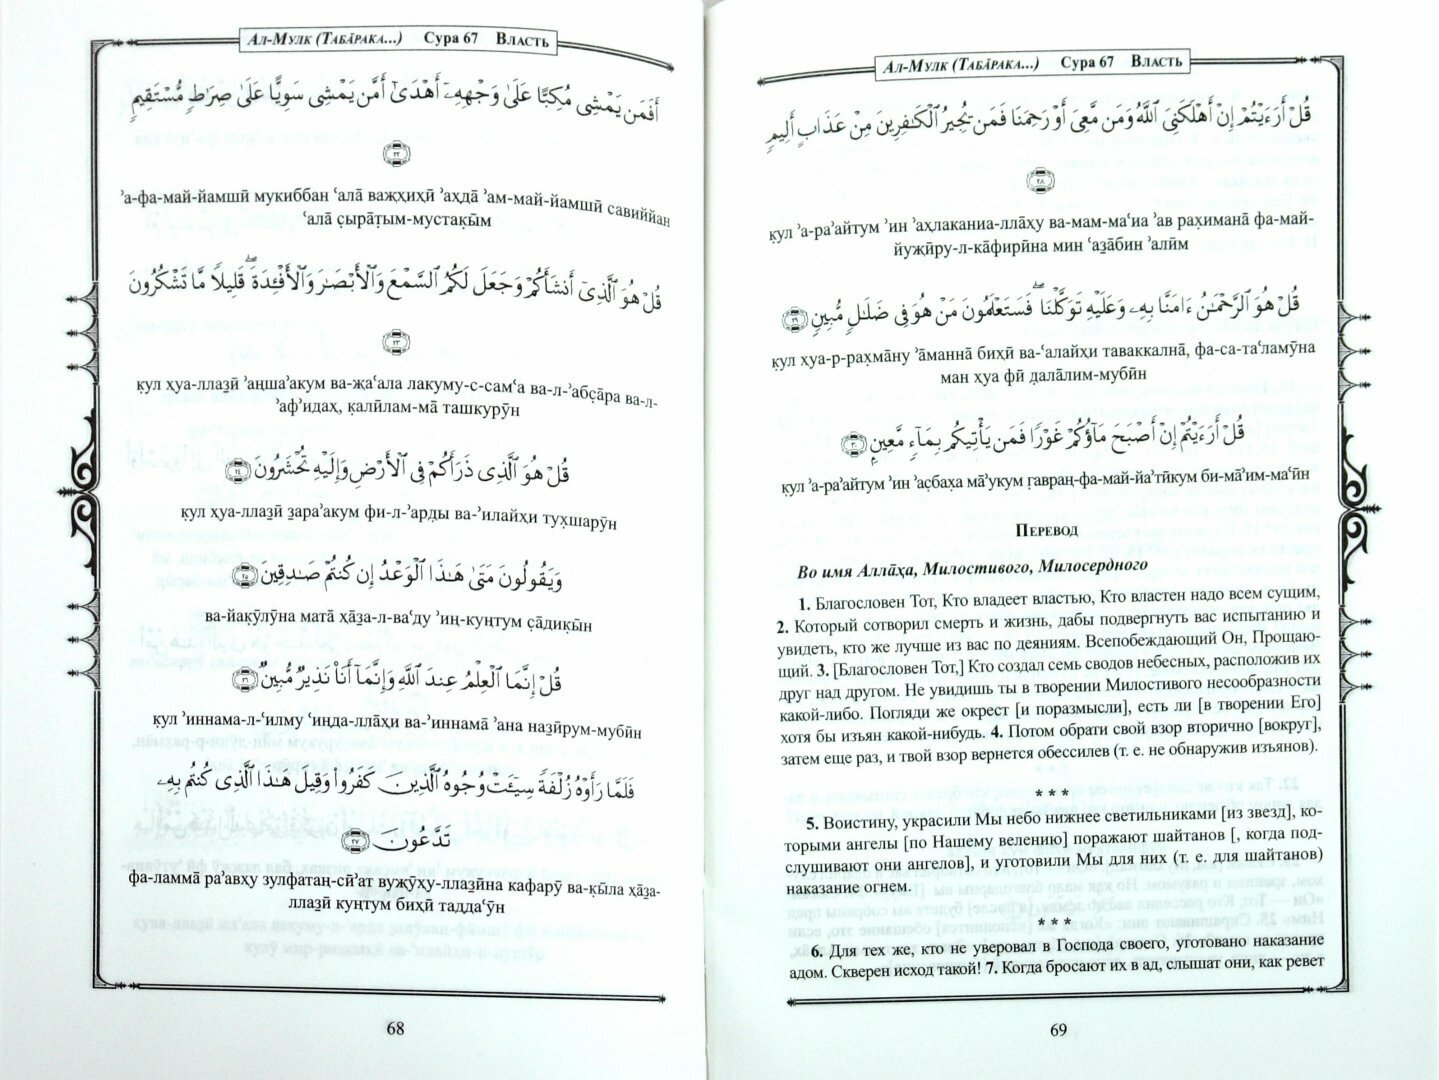 Ал-Мулк (Таба̄рака...) Сура 67 Власть
أَفَمَن يَمْشِى مُكِبًّا عَلَىٰ وَجْهِهِۦٓ أَهْدَىٰٓ أَمَّن يَمْشِى سَوِيًّا عَلَىٰ صِرَٰطٍ مُّسْتَقِيمٍ
٢٢
ʼа-фа-май-йамшӣ мукиббан ʻала̄ важ̣ҳиҳӣ ʼаҳда̄ ʼам-май-йамшӣ савиййан
ʻала̄ с̣ыра̄т̣ым-мустак̣ы̄м
قُلْ هُوَ ٱلَّذِىٓ أَنشَأَكُمْ وَجَعَلَ لَكُمُ ٱلسَّمْعَ وَٱلْأَبْصَٰرَ وَٱلْأَفْـِٔدَةَ ۖ قَلِيلًا مَّا تَشْكُرُونَ
٢٣
к̣ул ҳуа-ллаз̱ӣ ʼан̣шаʼакум ва-ж̣аʻала лакуму-с-самʻа ва-л-ʼабс̣а̄ра ва-л-
ʼафʼидаҳ, к̣алӣлам-ма̄ ташкурӯн
قُلْ هُوَ ٱلَّذِى ذَرَأَكُمْ فِى ٱلْأَرْضِ وَإِلَيْهِ تُحْشَرُونَ ٢٤
к̣ул ҳуа-ллаз̱ӣ з̱араʼакум фи-л-ʼард̣ы ва-ʼилайҳи тух̣шарӯн
وَيَقُولُونَ مَتَىٰ هَٰذَا ٱلْوَعْدُ إِن كُنتُمْ صَٰدِقِينَ ٢٥
ва-йак̣ӯлӯна мата̄ ҳа̄з̱а-л-ваʻду ʼин̣-кун̣тум с̣а̄дик̣ы̄н
قُلْ إِنَّمَا ٱلْعِلْمُ عِندَ ٱللَّهِ وَإِنَّمَآ أَنَا۠ نَذِيرٌ مُّبِينٌ ٢٦
к̣ул ʼиннама-л-ʻилму ʻин̣да-лла̄ҳи ва-ʼиннама̄ ʼана наз̱ӣрум-мубӣн
فَلَمَّا رَأَوْهُ زُلْفَةً سِيٓـَٔتْ وُجُوهُ ٱلَّذِينَ كَفَرُوا۟ وَقِيلَ هَٰذَا ٱلَّذِى كُنتُم بِهِۦ
تَدَّعُونَ ٢٧
фа-ламма̄ раʼавҳу зулфатан̣-сӣʼат вуж̣ӯҳу-ллаз̱ӣна кафарӯ ва-к̣ы̄ла ҳа̄з̱а-
ллаз̱ӣ кун̣тум биҳӣ таддаʻӯн
68
Ал-Мулк (Таба̄рака...) Сура 67 Власть
قُلْ أَرَءَيْتُمْ إِنْ أَهْلَكَنِىَ ٱللَّهُ وَمَن مَّعِىَ أَوْ رَحِمَنَا فَمَن يُجِيرُ ٱلْكَٰفِرِينَ مِنْ عَذَابٍ أَلِيمٍ
٢٨
к̣ул ʼа-раʼайтум ʼин ʼаҳлаканиа-лла̄ҳу ва-мам-маʻиа ʼав рах̣имана̄ фа-май-
йуж̣ӣру-л-ка̄фирӣна мин ʻаз̱а̄бин ʼалӣм
قُلْ هُوَ ٱلرَّحْمَٰنُ ءَامَنَّا بِهِۦ وَعَلَيْهِ تَوَكَّلْنَا ۖ فَسَتَعْلَمُونَ مَنْ هُوَ فِى ضَلَٰلٍ مُّبِينٍ ٢٩
к̣ул ҳуа-р-рах̣ма̄ну ʼа̄манна̄ биҳӣ ва-ʻалайҳи таваккална̄, фа-са-таʻламӯна
ман ҳуа фӣ д̣ала̄лим-мубӣн
قُلْ أَرَءَيْتُمْ إِنْ أَصْبَحَ مَآؤُكُمْ غَوْرًا فَمَن يَأْتِيكُم بِمَآءٍ مَّعِينٍۭ ٣٠
к̣ул ʼа-раʼайтум ʼин ʼас̣бах̣а ма̄ʼукум г̣авран̣-фа-май-йаʼтӣкум би-ма̄ʼим-маʻӣн
Перевод
Во имя Алла̄ҳа, Милостивого, Милосердного
1. Благословен Тот, Кто владеет властью, Кто властен надо всем сущим,
2. Который сотворил смерть и жизнь, дабы подвергнуть вас испытанию и
увидеть, кто же лучше из вас по деяниям. Всепобеждающий Он, Прощаю-
щий. 3. [Благословен Тот,] Кто создал семь сводов небесных, расположив их
друг над другом. Не увидишь ты в творении Милостивого несообразности
какой-либо. Погляди же окрест [и поразмысли], есть ли [в творении Его]
хотя бы изъян какой-нибудь. 4. Потом обрати свой взор вторично [вокруг],
затем еще раз, и твой взор вернется обессилев (т. е. не обнаружив изъянов).
* * *
5. Воистину, украсили Мы небо нижнее светильниками [из звезд], ко-
торыми ангелы [по Нашему велению] поражают шайтанов [, когда под-
слушивают они ангелов], и уготовили Мы для них (т. е. для шайтанов)
наказание огнем.
* * *
6. Для тех же, кто не уверовал в Господа своего, уготовано наказание
адом. Скверен исход такой! 7. Когда бросают их в ад, слышат они, как ревет
69